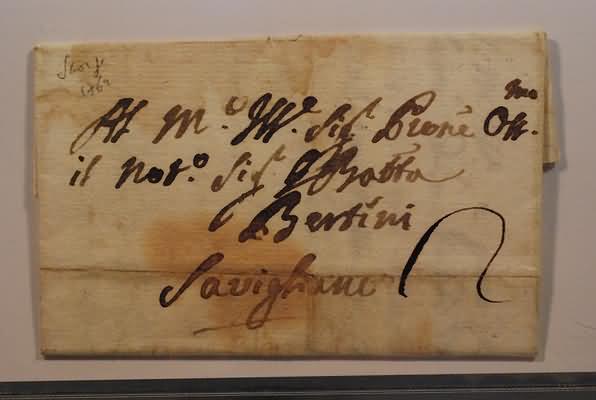 Al M.º Ill.e Sig.r Prone Oss.mo
il Not.º Sig.r G Batta
Bertini
Savigliano